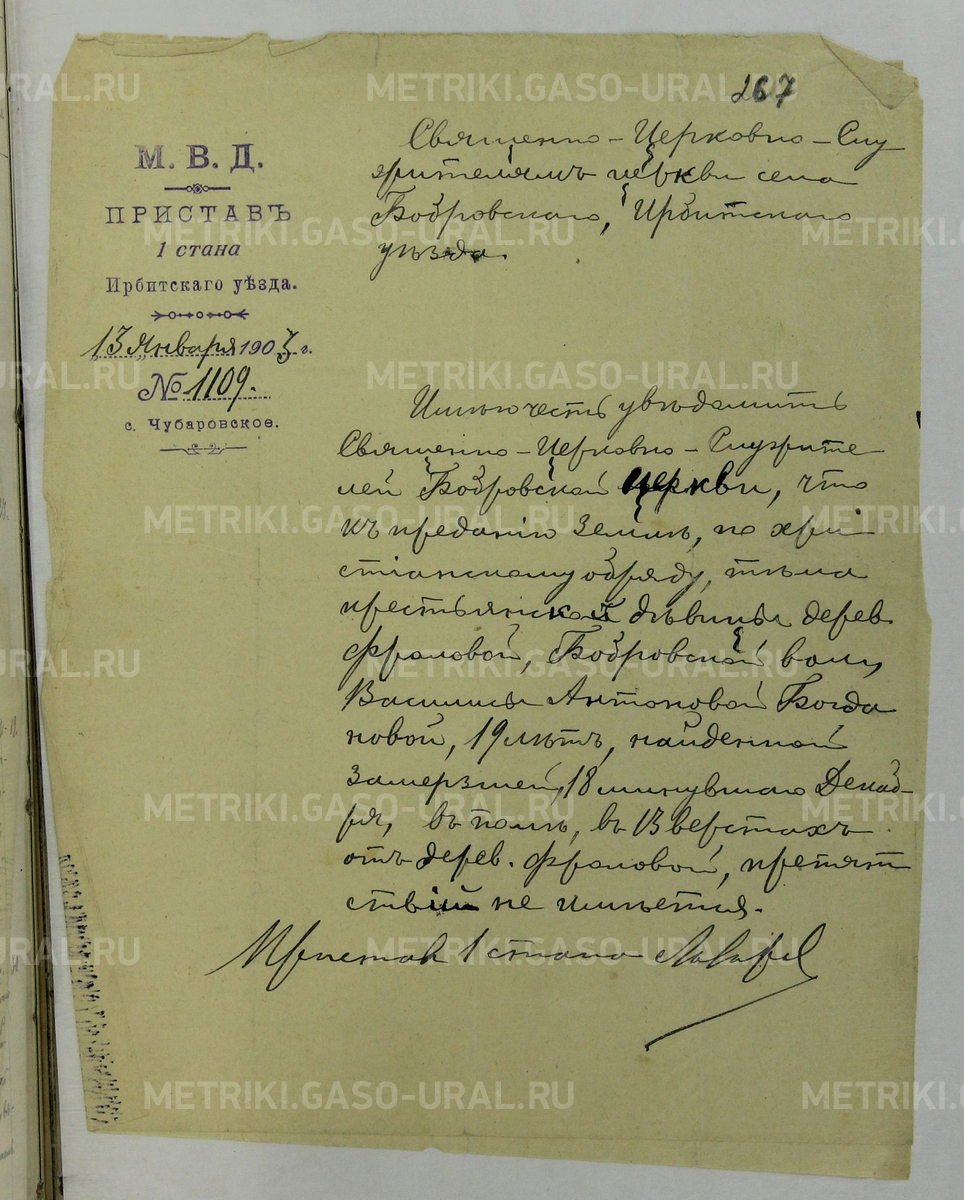 267
М. В. Д.
ПРИСТАВЪ
1 стана
Ирбитскаго уѣзда.
„13" Января 1903 г.
№ 1109.
с. Чубаровское.
Священно-Церковно-Слу
жителямъ церкви села
Бобровскаго, Ирбитскаго
уѣзда.
Имѣю честь увѣдомить
Священно-Церковно-Служите
лей Бобровской церкви, что
къ преданію землѣ, по хри
стіанскому обряду, тѣла
крестьянской дѣвицы дерев.
Фроловой, Бобровской вол.,
Василисы Антоновой Богда
новой, 19 лѣтъ, найденной
замерзшей 18 минувшаго Декаб-
ря, въ полѣ, въ 13 верстахъ
отъ дерев. Фроловой, препят
ствій не имѣется.
Приставъ 1 стана
METRIKI.GASO-URAL.RU